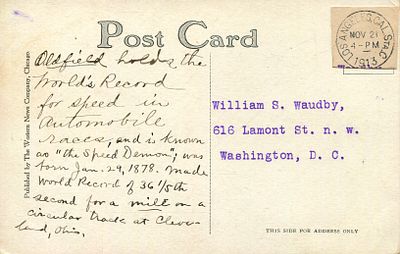 Post Card
LOS ANGELES, CAL. STA. C
NOV 21
4-PM
1913
Oldfield holds the
World's Record
for speed in
Automobile
races, and is known
as "the Speed Demon"; was
born Jan. 29, 1878. Made
World Record of 36 1/5th
second for a mile on a
circular track at Cleve-
land, Ohio.
Published by The Western News Company, Chicago
William S. Waudby,
616 Lamont St. n. w.
Washington, D. C.
THIS SIDE FOR ADDRESS ONLY